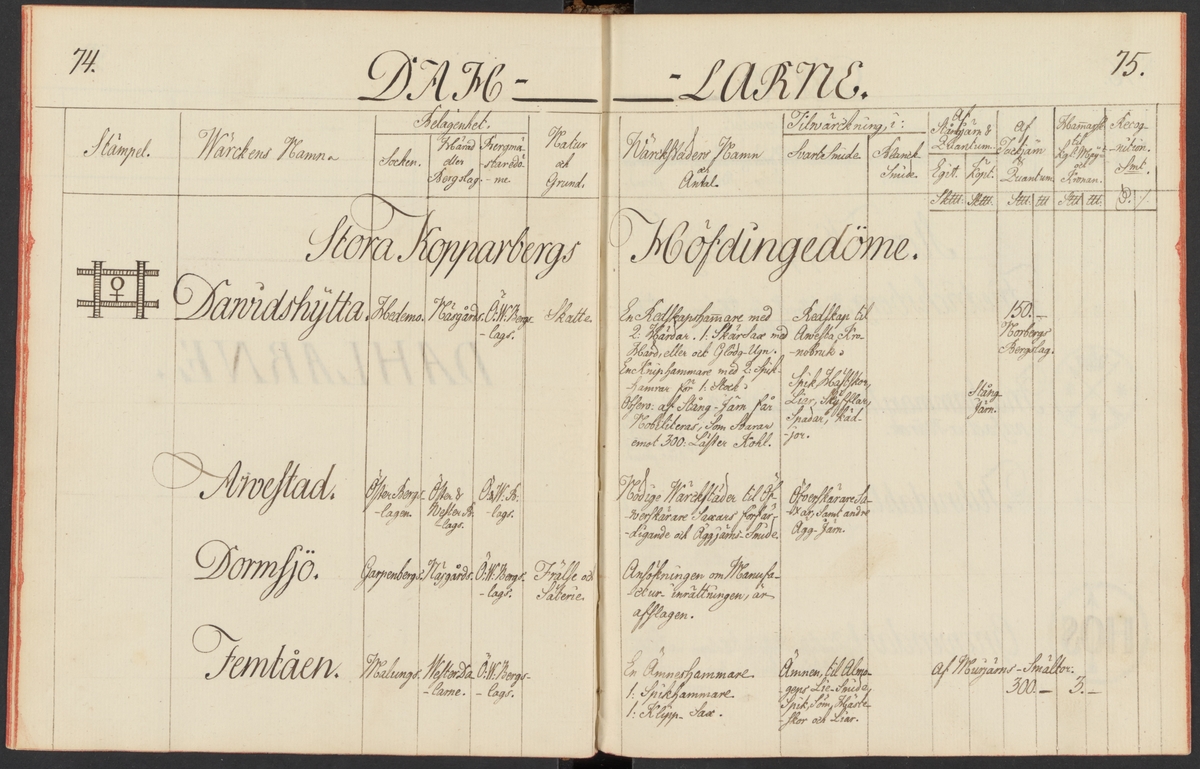 74.
DAH-
-LARNE.
75.
Stämpel.
Wärckens Namn.
Belägenhet.
Socken.
Härad
eller
Bergslag.
Bergmä-
staredö-
me.
Natur
och
Grund.
Wärckstäders Namn
och
Antal.
Tilwärckning, i:
Svartsmide.
Blanck
Smide.
Af
Stångjärn &
Quantum.
Egit.
Köpt.
Af
Tackjärn
Quantum
Hammarsk.
til
och
Kronan.
Recog-
nition.
Smt.
Stora Kopparbergs
Höfdingedöme.
Dawidshytta.
Hedemo.
Näsgårds.
Ö.W.Bergs-
-lags.
Skatte.
En Redskapshammare med
2. Härdar. 1. Skärsax med
Härd, eller ock Glödg-Ugn.
En Kniphammare med 2. Spik-
hamrar för 1. Stock.
Observ: at Stång-Järn får
Nobiliteras, som svarar
emot 300. Läster Kohl.
Redskap til
Awesta Kro-
nobruk.
Spik, Hästskor,
Liar, Skyfflar,
Spadar, Räd-
jor.
Stång
Järn.
150.-
Norbergs
Bergslag.
Arvestad.
Öster Bergs-
-lagen.
Öster &
Wester B.
lags.
Ö.W.B.
-lags.
Nödige Wärckstäder til Öf-
verskärare Saxars förfär-
-digande och Äggjärns-Smide.
Öfverskärare Sa-
xar, samt andre
Ägg-Järn.
Dormsjö.
Garpenbergs.
Näsgårds.
Ö.W.Bergs-
-lags.
Frälse och
Säterie.
Ansökningen om Manufa-
ctur-inrättningen, är
afslagen.
Femtåen.
Malungs.
Westerda-
-larne.
Ö.W.Bergs-
-lags.
En Ämneshammare.
1: Spikhammare.
1: Klipp-Sax.
Ämnen, til Almo-
gens Lie-Smide,
Spik, Söm, Häste-
skor och Liar.
Af Myrjärns-Smältor.
300.- 3.-